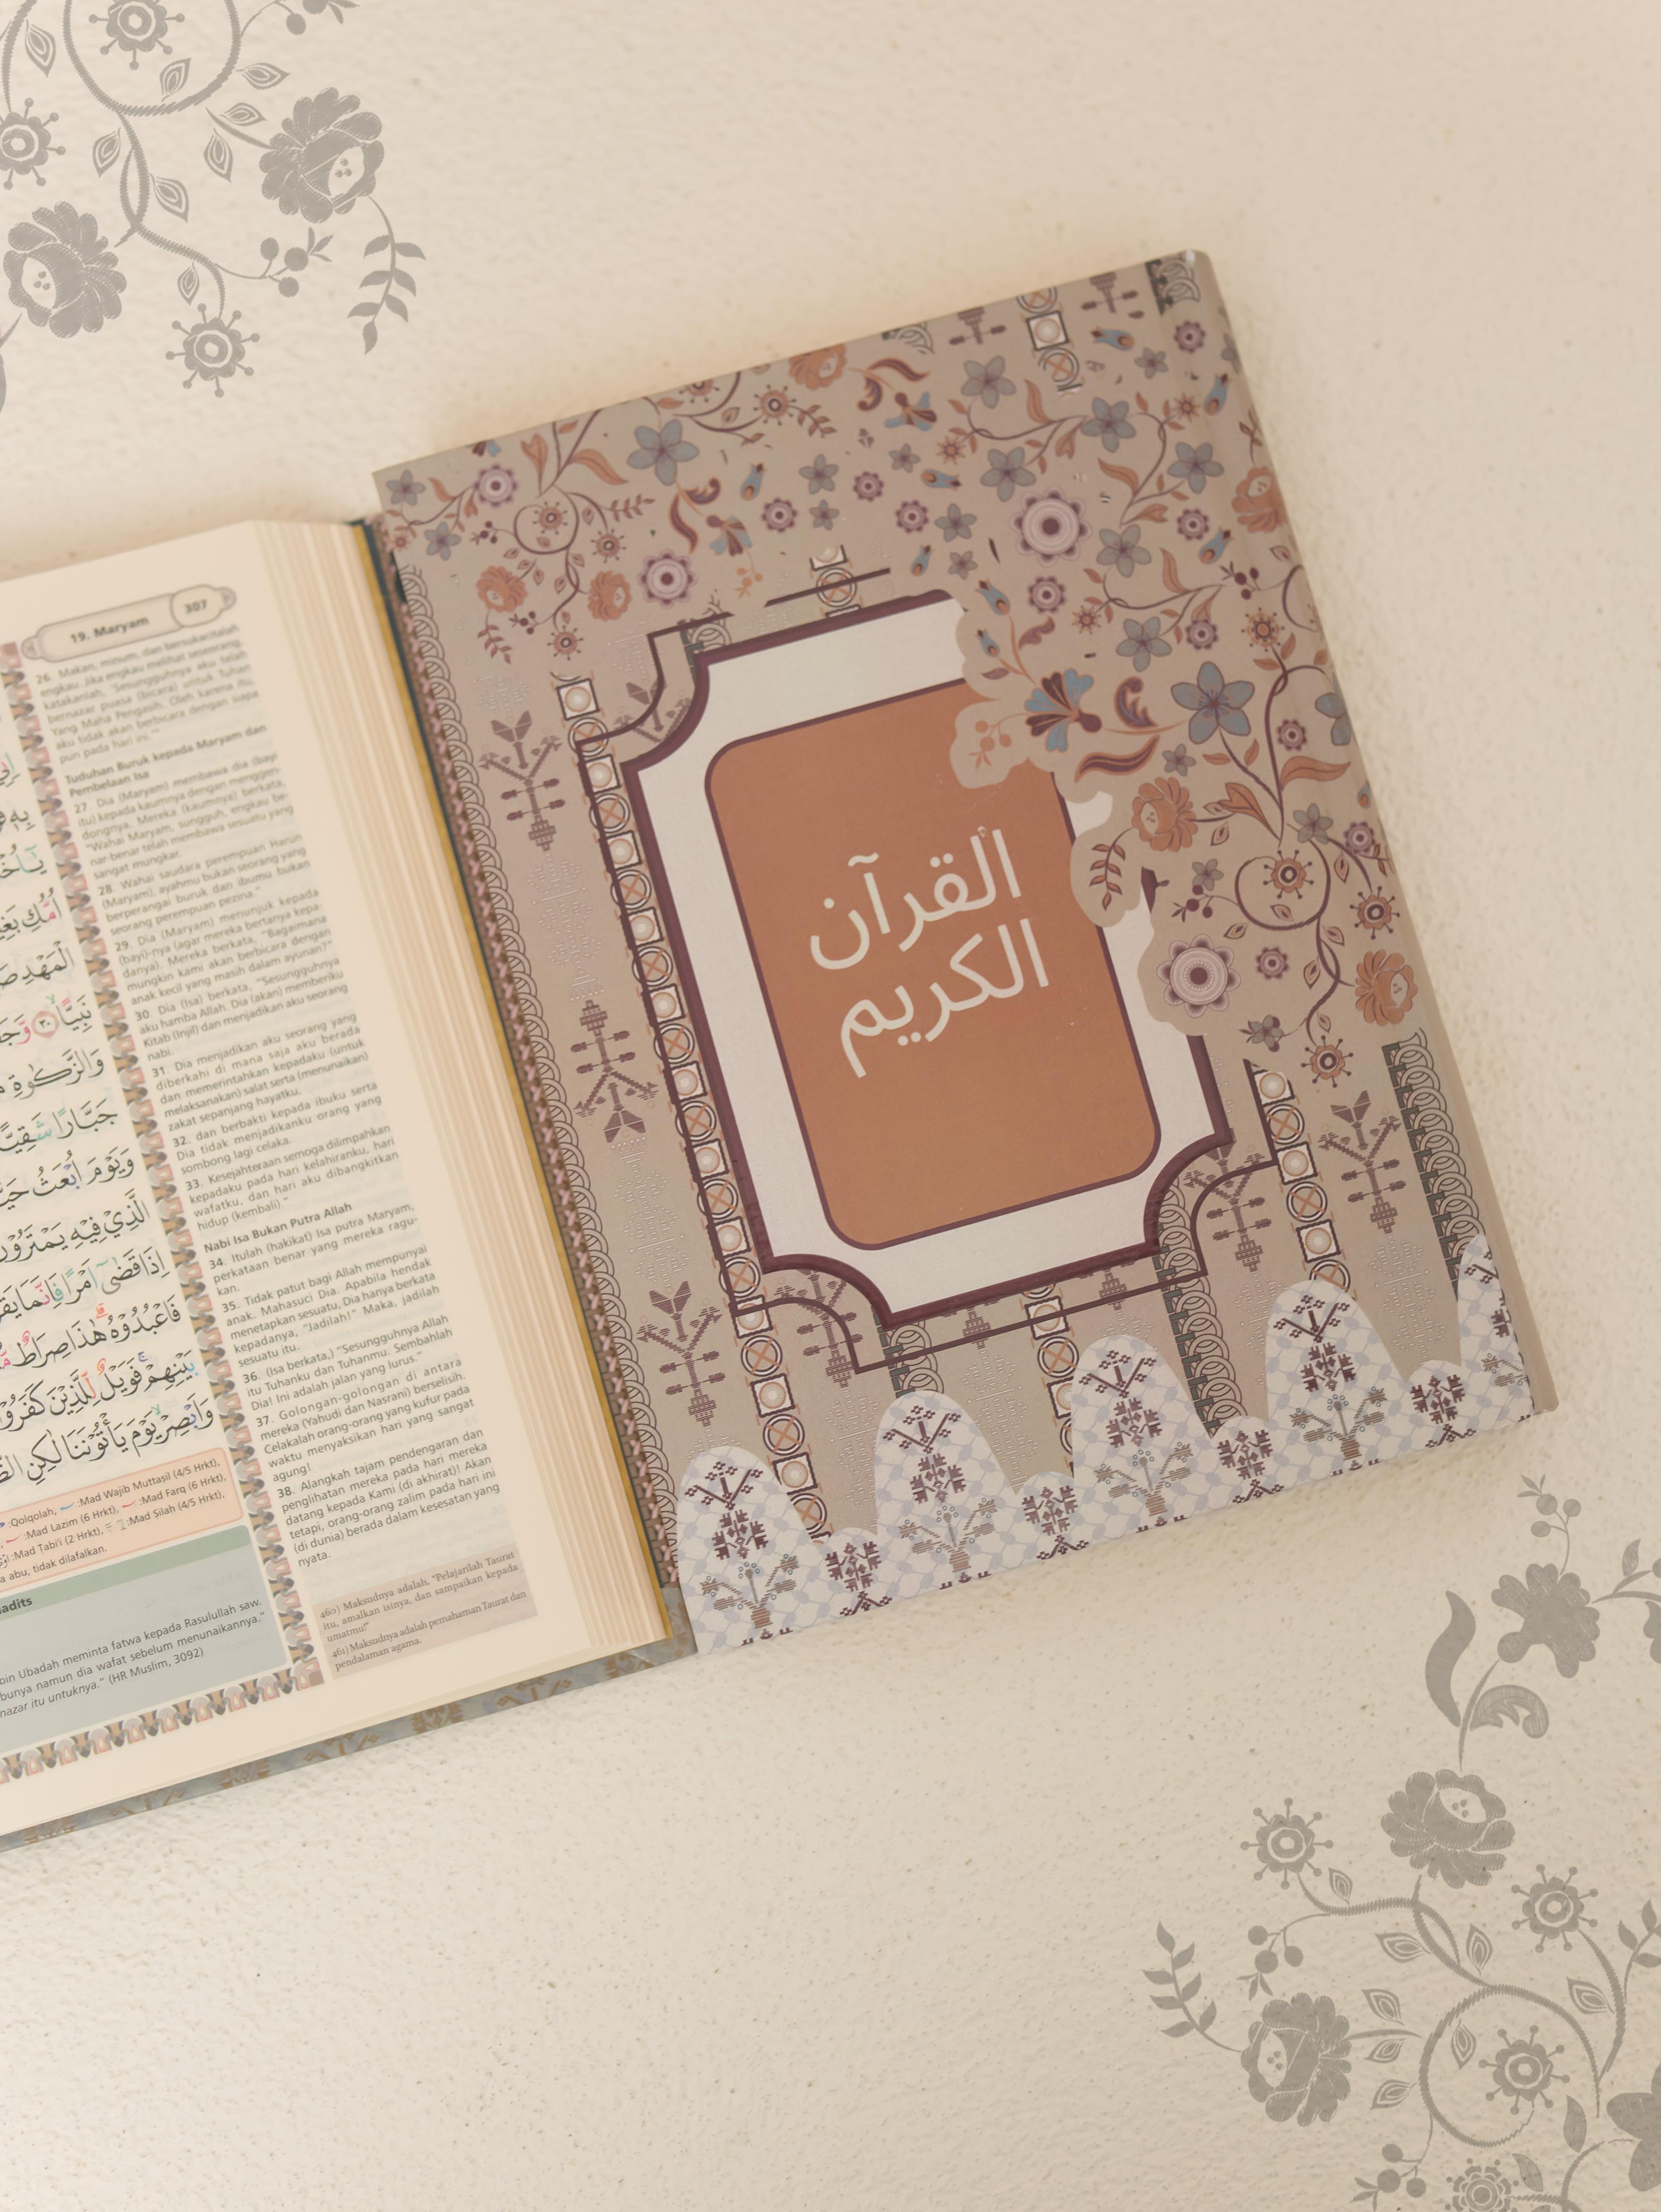 19. Maryam
307
26. Makan, minum, dan bersukacitalah
engkau. Jika engkau melihat seseorang,
katakanlah, "Sesungguhnya aku telah
bernazar puasa (bicara) untuk Tuhan
Yang Maha Pengasih. Oleh karena itu,
aku tidak akan berbicara dengan siapa
pun pada hari ini.'"
Tuduhan Buruk kepada Maryam dan
Pembelaan Isa
27 Dia (Maryam) membawa dia (bayi
itu) kepada kaumnya dengan menggen-
dongnya. Mereka (kaumnya) berkata,
"Wahai Maryam, sungguh, engkau be-
nar-benar telah membawa sesuatu yang
sangat mungkar.
28. Wahai saudara perempuan Harun
(Maryam), ayahmu bukan seorang yang
berperangai buruk dan ibumu bukan
seorang perempuan pezina."
29. Dia (Maryam) menunjuk kepada
(bayi)-nya (agar mereka bertanya kepa-
danya). Mereka berkata, "Bagaimana
mungkin kami akan berbicara dengan
anak kecil yang masih dalam ayunan?"
30. Dia (Isa) berkata, "Sesungguhnya
aku hamba Allah. Dia (akan) memberiku
Kitab (Injil) dan menjadikan aku seorang
nabi.
31. Dia menjadikan aku seorang yang
diberkahi di mana saja aku berada
dan memerintahkan kepadaku (untuk
melaksanakan) salat serta (menunaikan)
zakat sepanjang hayatku,
32. dan berbakti kepada ibuku serta
Dia tidak menjadikanku orang yang
sombong lagi celaka.
33. Kesejahteraan semoga dilimpahkan
kepadaku pada hari kelahiranku, hari
wafatku, dan hari aku dibangkitkan
hidup (kembali)."
Nabi Isa Bukan Putra Allah
34. Itulah (hakikat) Isa putra Maryam,
perkataan benar yang mereka ragu-
kan.
35. Tidak patut bagi Allah mempunyai
anak. Mahasuci Dia. Apabila hendak
menetapkan sesuatu, Dia hanya berkata
kepadanya, "Jadilah!" Maka, jadilah
sesuatu itu.
36. (Isa berkata,) "Sesungguhnya Allah
itu Tuhanku dan Tuhanmu. Sembahlah
Dia! Ini adalah jalan yang lurus."
37. Golongan-golongan di antara
mereka (Yahudi dan Nasrani) berselisih.
Celakalah orang-orang yang kufur pada
waktu menyaksikan hari yang sangat
agung!
38. Alangkah tajam pendengaran dan
penglihatan mereka pada hari mereka
datang kepada Kami (di akhirat)! Akan
tetapi, orang-orang zalim pada hari ini
(di dunia) berada dalam kesesatan yang
nyata.
460) Maksudnya adalah, "Pelajarilah Taurat
itu, amalkan isinya, dan sampaikan kepada
umatmu!"
461) Maksudnya adalah pemahaman Taurat dan
pendalaman agama.
أُمُّكِ
الْمَهْدِ
نَبِيًّا ٣٠
وَالزَّكٰوةِ
جَبَّارًا شَقِيًّا
وَيَوْمَ اُبْعَثُ
الَّذِيْ فِيْهِ يَمْتَرُوْنَ
اِذَا قَضٰىٓ اَمْرًا فَاِنَّمَا
فَاعْبُدُوْهُ هٰذَا صِرَاطٌ
بَيْنِهِمْ فَوَيْلٌ لِّلَّذِيْنَ كَفَرُوْا
وَاَبْصِرْ يَوْمَ يَأْتُوْنَنَا لٰكِنِ
:Qolqolah, :Mad Wajib Muttaṣil (4/5 Hrkt),
:Mad Lazim (6 Hrkt), :Mad Farq (6 Hrkt),
:Mad Tabi'i (2 Hrkt), :Mad Ṣilah (4/5 Hrkt),
abu, tidak dilafalkan.
bin Ubadah meminta fatwa kepada Rasulullah saw.
namun dia wafat sebelum menunaikannya."
nazar itu untuknya." (HR Muslim, 3092)
القرآن
الكريم